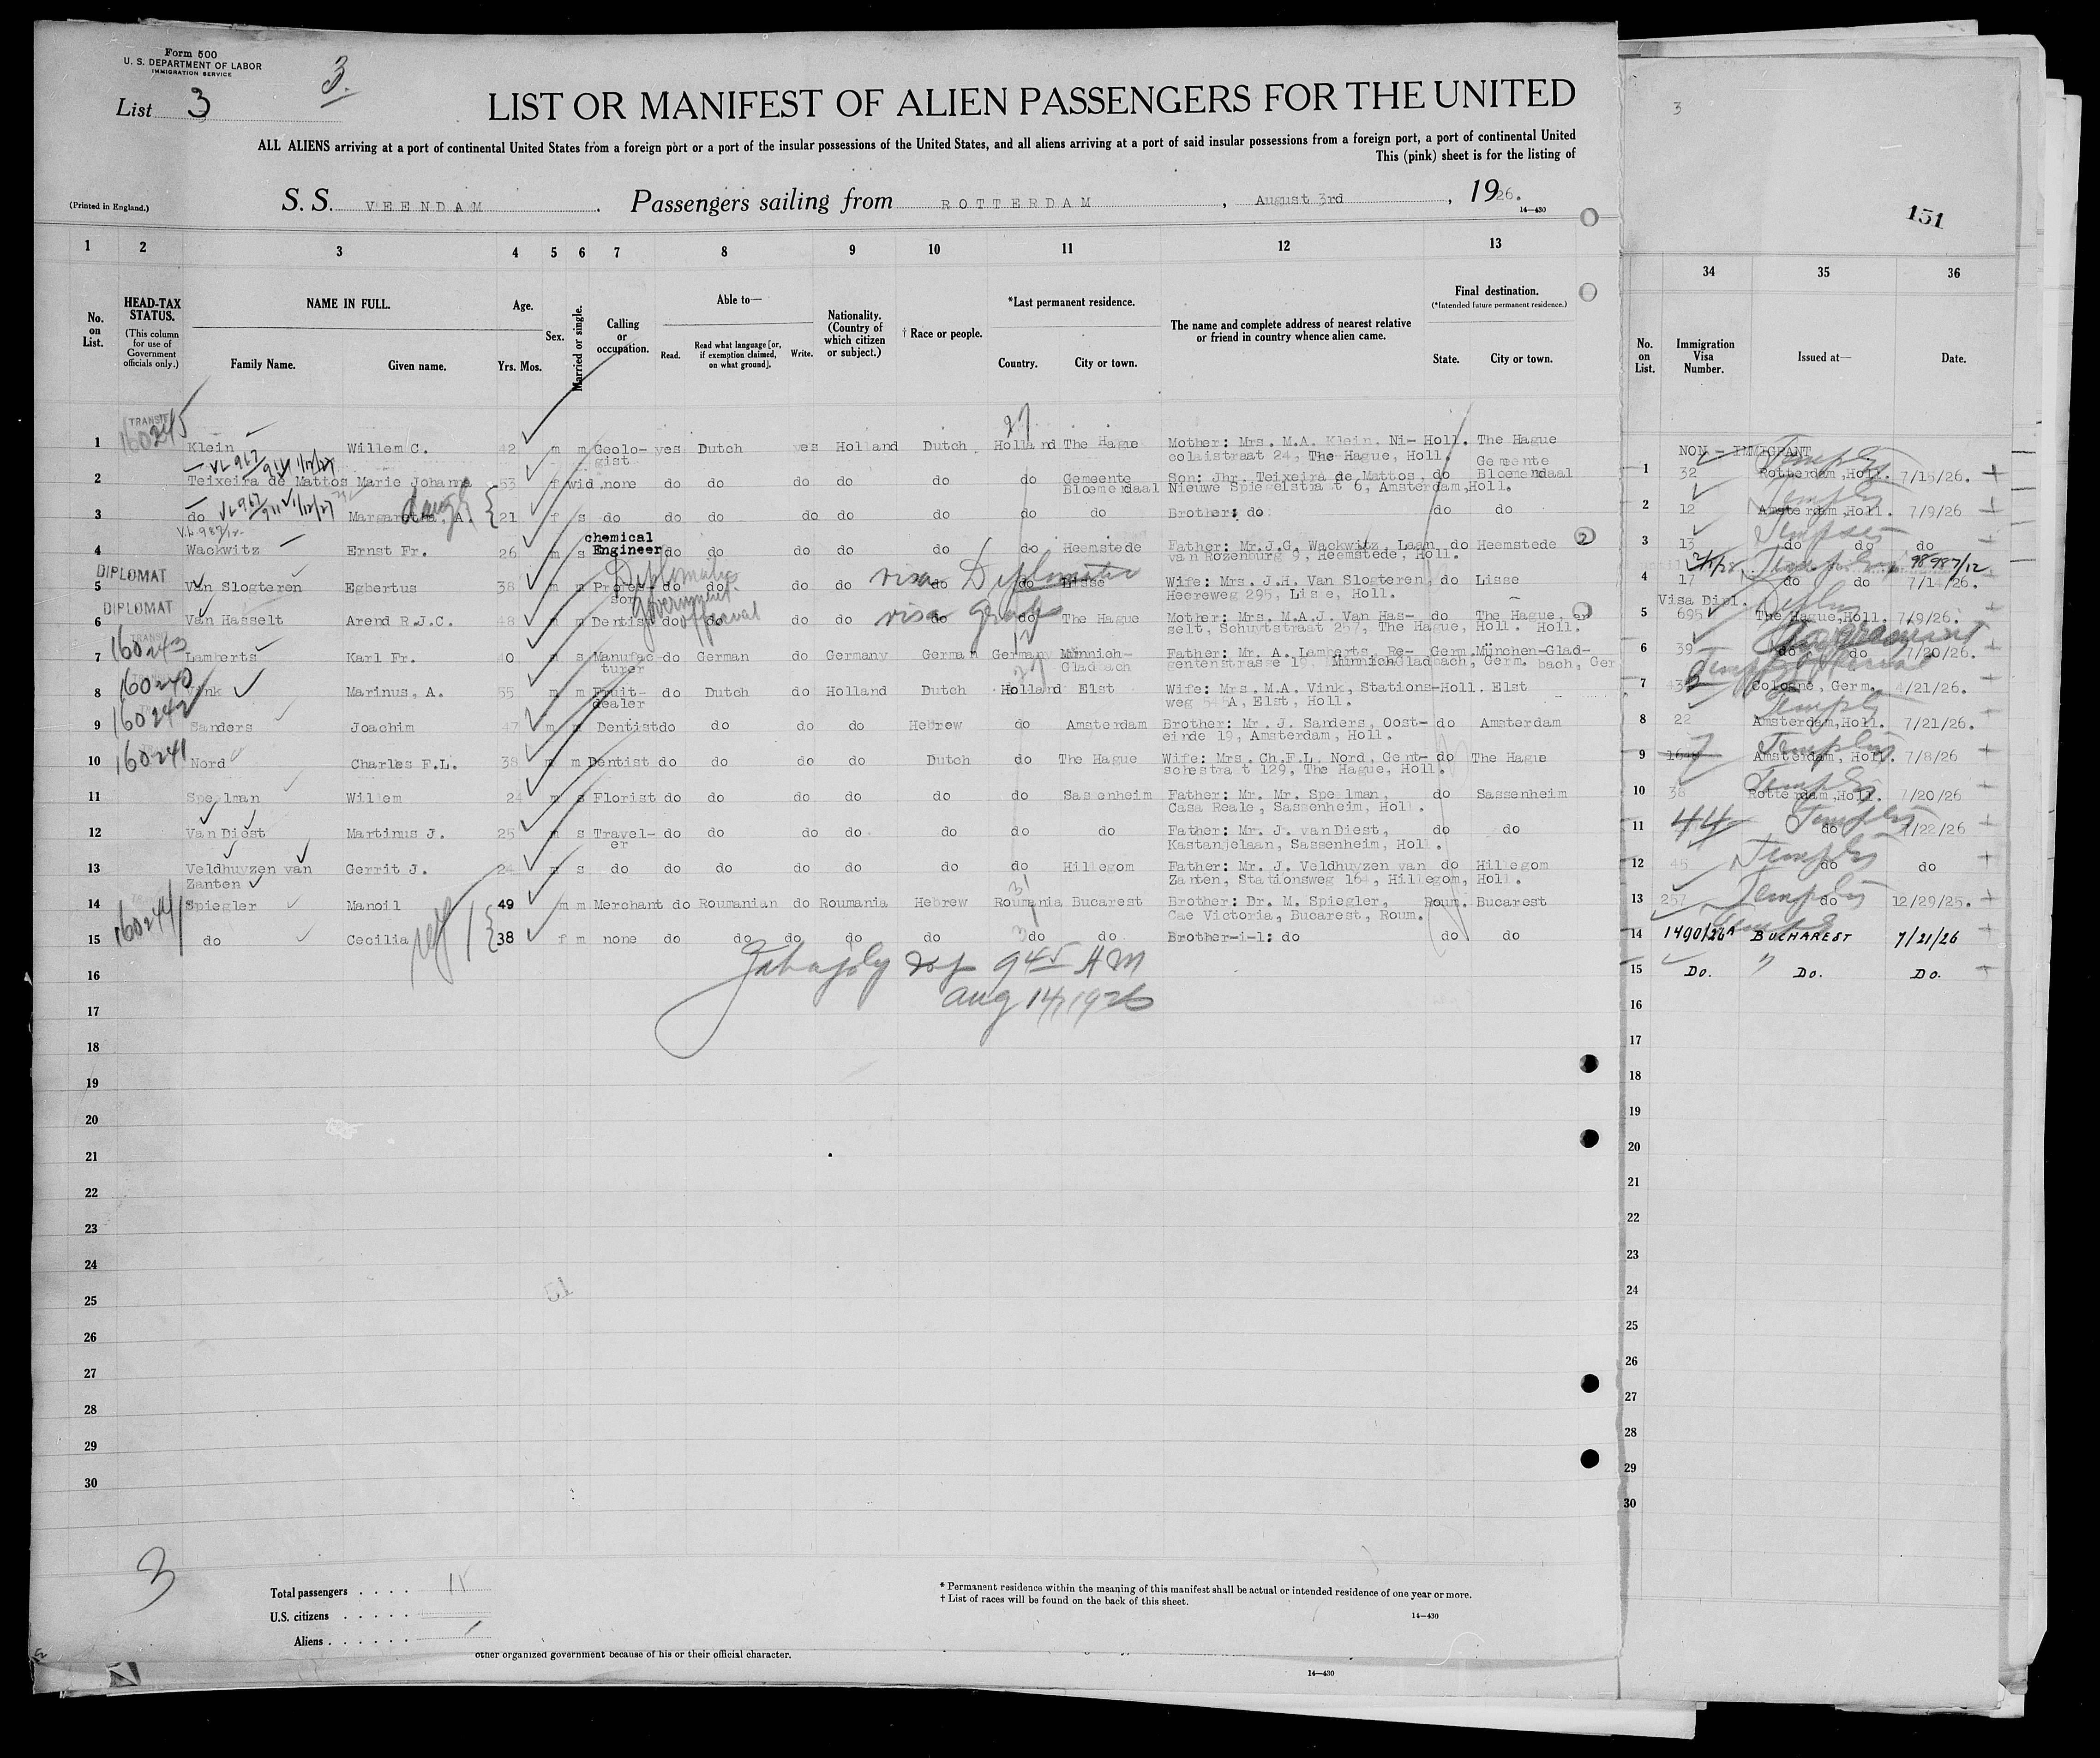 Form 500
U. S. DEPARTMENT OF LABOR
IMMIGRATION SERVICE
3.
List 3
LIST OR MANIFEST OF ALIEN PASSENGERS FOR THE UNITED
ALL ALIENS arriving at a port of continental United States from a foreign port or a port of the insular possessions of the United States, and all aliens arriving at a port of said insular possessions from a foreign port, a port of continental United
This (pink) sheet is for the listing of
(Printed in England.) S. S. VEENDAM. Passengers sailing from ROTTERDAM, August 3rd, 1926.
14—430
1 2 3 4 5 6 7 8 9 10 11 12 13
No. on List. HEAD-TAX STATUS. (This column for use of Government officials only.) NAME IN FULL. Family Name. Given name. Age. Yrs. Mos. Sex. Married or single. Calling or occupation. Able to— Read. Read what language [or, if exemption claimed, on what ground]. Write. Nationality. (Country of which citizen or subject.) † Race or people. *Last permanent residence. Country. City or town. The name and complete address of nearest relative or friend in country whence alien came. Final destination. (*Intended future permanent residence.) State. City or town.
160245 27
1 Klein Willem C. 42 m m Geolo- yes Dutch yes Holland Dutch Holland The Hague Mother: Mrs. M.A. Klein, Ni- Holl. The Hague
gist colaistraat 24, The Hague, Holl. Gemeente
2 Teixeira de Mattos Marie Johanna 53 f wid. none do do do do do do Gemeente Son: Jhr. Teixeira de Mattos, do Bloemendaal
Bloemendaal Nieuwe Spiegelstraat 6, Amsterdam, Holl.
daugh
3 do Margaretha, A. 21 f s do do do do do do do do Brother: do do do
chemical
4 Wackwitz Ernst Fr. 26 m s Engineer do do do do do do Heemstede Father: Mr. J.G. Wackwitz, Laan do Heemstede 2
van Rozenburg 9, Heemstede, Holl.
DIPLOMAT Diplomatic visa Diplomatic
5 Van Slogteren Egbertus 38 m m Profes- do do do do do do Lisse Wife: Mrs. J.H. Van Slogteren, do Lisse
sor Heereweg 295, Lisse, Holl.
DIPLOMAT Government official visa
6 Van Hasselt Arend R.J.C. 48 m m Dentist do do do do do do The Hague Mother: Mrs. M.A.J. Van Has- do The Hague,
selt, Schuytstraat 257, The Hague, Holl. Holl.
160243
7 Lamberts Karl Fr. 40 m s Manufac- do German do Germany German Germany Münnich- Father: Mr. A. Lamberts, Re- Germ. München-Glad-
turer Gladbach gentenstrasse 19, MünnichGladbach, Germ. bach, Ger
160240 27
8 Vink Marinus, A. 55 m m Fruit- do Dutch do Holland Dutch Holland Elst Wife: Mrs. M.A. Vink, Stations-Holl. Elst
dealer weg 54 A, Elst, Holl.
160242
9 Sanders Joachim 47 m m Dentist do do do do Hebrew do Amsterdam Brother: Mr. J. Sanders, Oost- do Amsterdam
einde 19, Amsterdam, Holl.
160241
10 Nord Charles F.L. 38 m m Dentist do do do do Dutch do The Hague Wife: Mrs. Ch.F.L. Nord, Gent- do The Hague
schestraat 129, The Hague, Holl.
11 Speelman Willem 24 m s Florist do do do do do do Sassenheim Father: Mr. Mr. Speelman, do Sassenheim
Casa Reale, Sassenheim, Holl.
12 Van Diest Martinus J. 25 m s Travel- do do do do do do do Father: Mr. J. vanDiest, do do
er Kastanjelaan, Sassenheim, Holl.
13 Veldhuyzen van Gerrit J. 24 m s do do do do do do do Hillegom Father: Mr. J. Veldhuyzen van do Hillegom
Zanten Zanten, Stationsweg 164, Hillegom, Holl.
160244 31
14 Spiegler Manoil 49 m m Merchant do Roumanian do Roumania Hebrew Roumania Bucarest Brother: Dr. M. Spiegler, Roum. Bucarest
Cae Victoria, Bucarest, Roum.
15 do Cecilia 38 f m none do do do do do do do Brother-i-l: do do do
9 45 AM
Aug 14, 1926
16
17
18
19
20
21
22
23
24
25
51
26
27
28
29
30
3
Total passengers . . . . 15
U.S. citizens . . . . .
Aliens . . . . . .
* Permanent residence within the meaning of this manifest shall be actual or intended residence of one year or more.
† List of races will be found on the back of this sheet.
14—430
other organized government because of his or their official character.
14—430
3
151
34 35 36
No. on List. Immigration Visa Number. Issued at— Date.
NON - IMMIGRANT
1 32 Rotterdam, Holl. 7/15/26.
2 12 Amsterdam, Holl. 7/9/26
3 13 do do do
4 17 do do 7/14/26.
Visa Dipl.
5 695 The Hague, Holl. 7/9/26.
6 39 do do 7/20/26.
7 Cologne, Germ. 4/21/26.
8 22 Amsterdam, Holl. 7/21/26.
9 Amsterdam, Holl. 7/8/26
10 38 Rotterdam, Holl. 7/20/26
11 44 do 7/22/26
12 45 do do
13 257 do 12/29/25.
14 1490/26 BUCHAREST 7/21/26
15 Do. Do. Do.
16
17
18
19
20
21
22
23
24
25
26
27
28
29
30